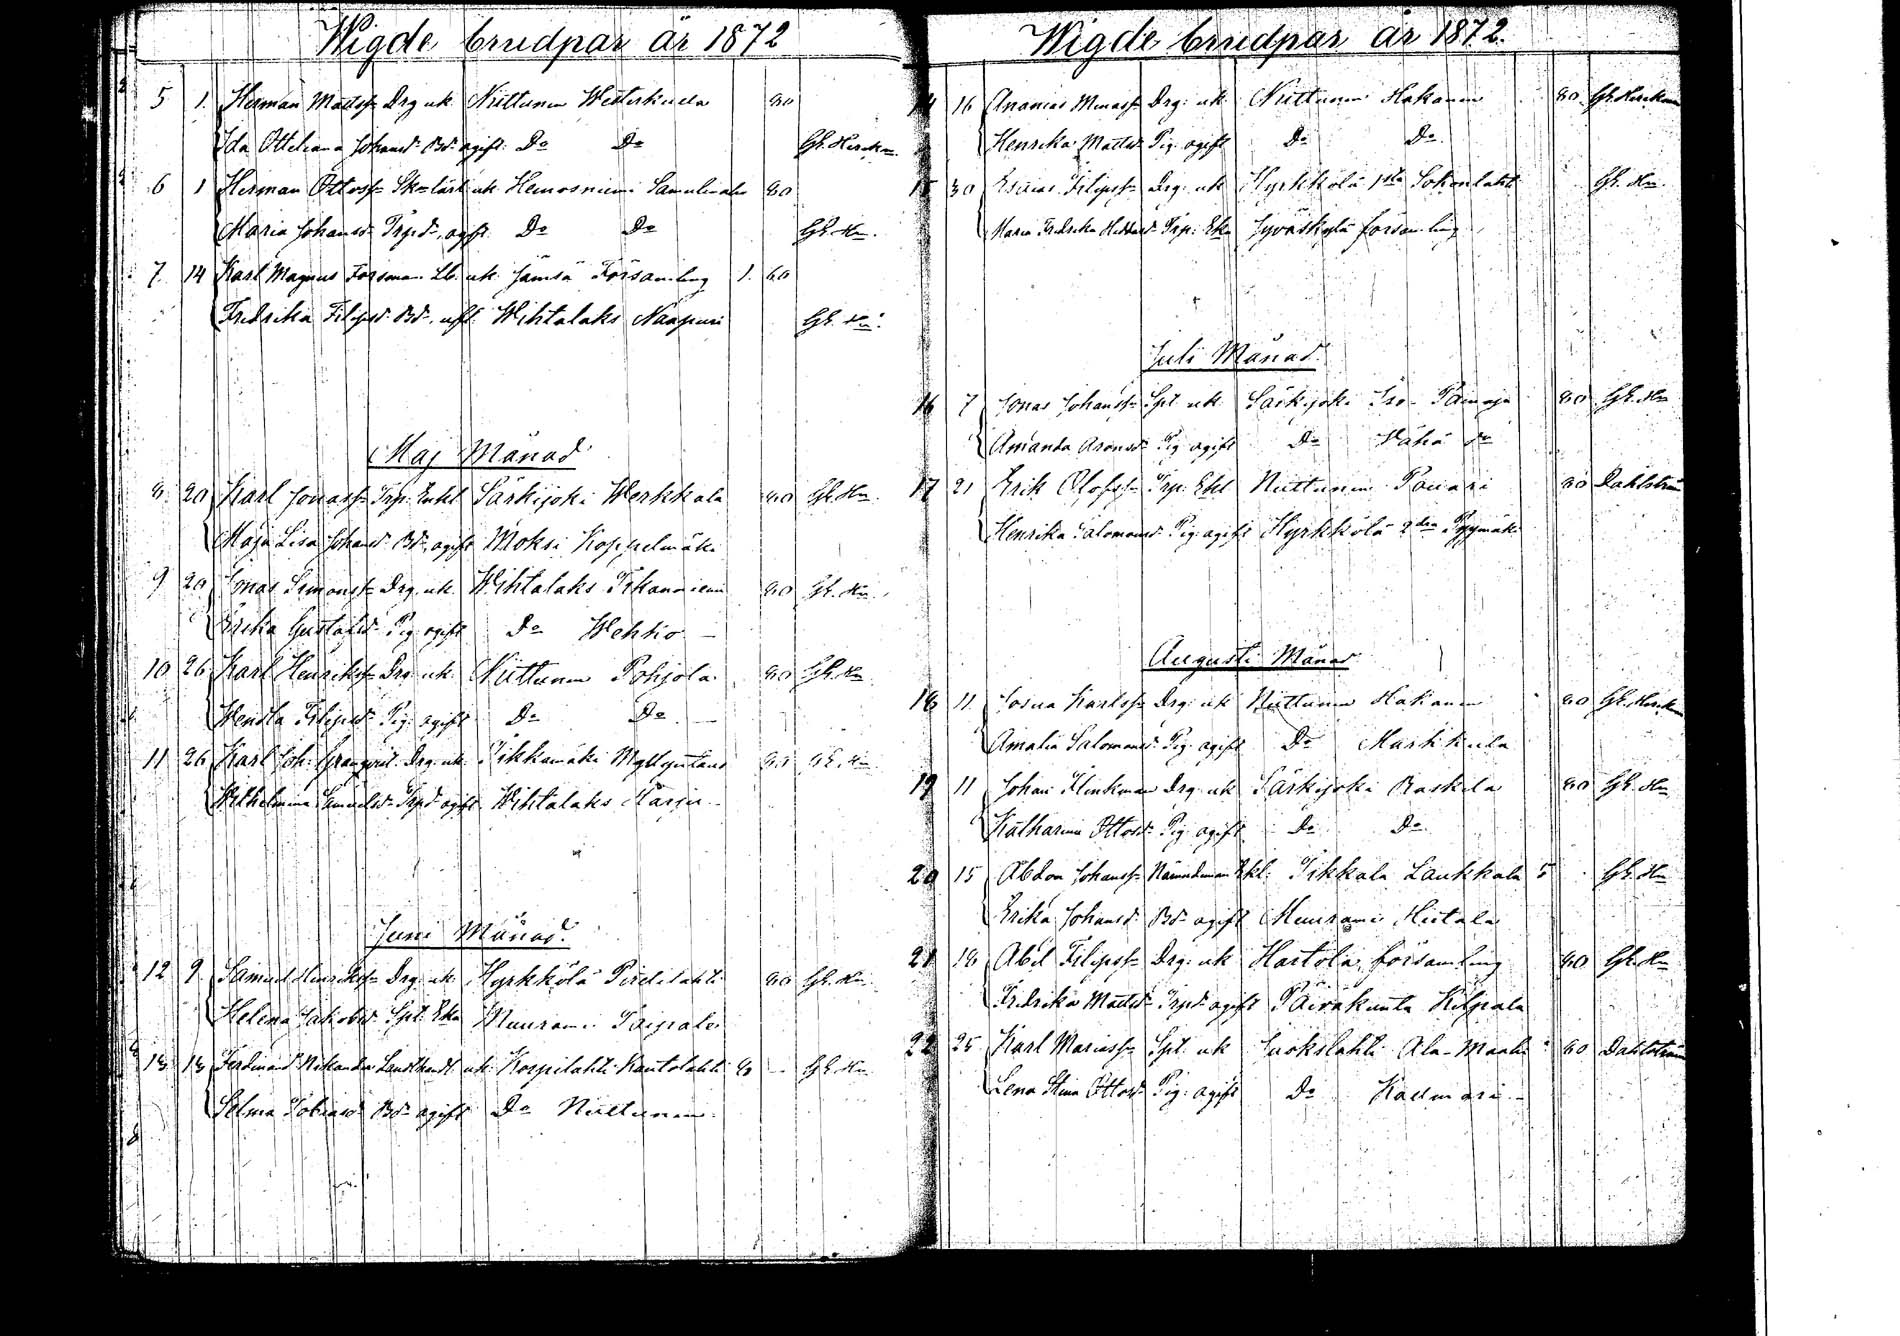 Wigde brudpar år 1872
5 1. Herman Mattsf= Drg uk Nüttunen Westerkuela 80
Ida Ottiliana Johansd. Bd= ogift. Do Do Gh. Heickm.
6 1 Herman Ottosf= Sk=lärl uk Heinosniemi 80
Maria Johansd= Trpd=, ogft. Do Do Gh. Hn.
7. 14 Karl Magnus Forsman Lb. uk Jämsä Församling 1. 60
Fredrika Filipsd. Bd=, Wihtalaks Naapuri Gh. Hn.
Maj Månad
8. 20 Karl Jonasf= Trp. Enkl Särkijoki Werkkala 80 Gh. Hn.
Maja Lisa Johansd. Bd=, ogift Moksi Koppelmäki
9 20 Jonas Simonsf= Drg. uk. Wihtalaks 80 Gh. Hn.
Erika Gustafsd= Pig ogift Do Wehkio
10 26 Karl Henriksf= Drg uk. Nüttunen Pohjola 80 Gh. Hn
Wendla Filipsd= Pig. ogift Do Do
11 26 Karl Joh. Granqvist Drg. uk. Tikkamäki 80 Gh. Hn
Wilhelmina Samuelsd= Trpd= ogift Wihtalaks Harju
Juni Månad.
12 9 Samuel Henriksf= Drg. uk Hyrkkölä 80 Gh. Hn.
Helena Jakobsd. Spt. Eka Muurame Taipale
13 13 Ferdinand Nikander Landthandl. uk. Korpilahti Kantolahti 8 - Gh. Hn
Selma Tobiasd. Bd= ogift Do Nüttunen
Wigde brudpar år 1872.
14 16 Ananias Minasf= Drg: uk Nüttunen Hakanen 80. Gh. Heickm
Henrika Mattsd. Pig ogift Do Do
15 30 Esaias Filipsf= Drg: uk Hyrkkölä 1sta Sokonlahti Gh. Hn
Maria Fredrika Trp: Eka Jyväskylä församling
Juli Månad.
16 7 Jonas Johansf= Spt uk. Särkijoki Iso- 80 Gh. Hn
Amanda Aronsd= Pig ogift Do Vähä do
17 21 Erik Olofsf= Trp: Ekl Nüttunen Pouari 80 Dahlström
Henrika Salomonsd Pig: ogift Hyrkkölä 2dra Pyymäki
Augusti Månad
18 11 Josua Karlsf= Drg: uk Nüttunen Hakanen 80 Gh. Heickm
Amalia Salomonsd. Pig. ogift Do Markkula
19 11 Johan Klinkman Drg. uk Särkijoki Raskila 80 Gh. Hn
Katharina Ottosd= Pig: ogift Do Do
20 15 Abdon Johansf= Nämndeman Ekl: Tikkala Laukkala 5 Gh. Hn
Erika Johansd. Bd= ogift Muurame Hietala
21 18 Abel Filipsf= Drg: uk Hartola församling 80 Gh. Hn
Fredrika Mattsd= Trpd= ogift Päiväkunta Kilpala
22 25 Karl Mariasf= Spt. uk Juokslahti Ala-Maahi 80 Dahlström
Lena Stina Ottosd= Pig: ogift Do Kallmari